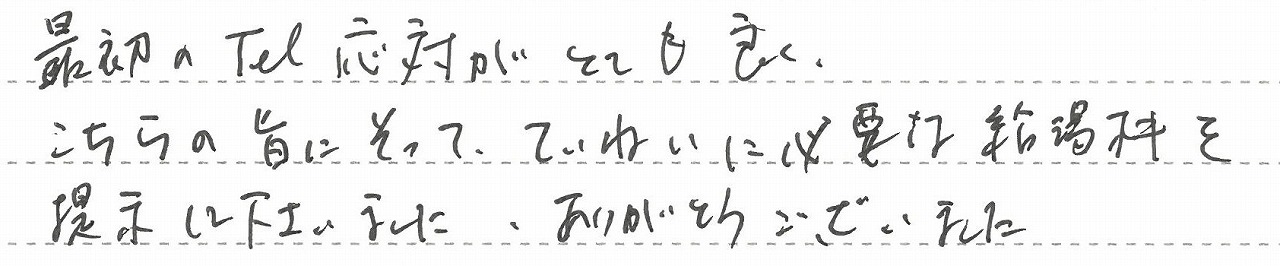 最初のTel応対がとても良く、
こちらの旨にそって、ていねいに必要な給湯杯を
提示して下さいました、ありがとうございました